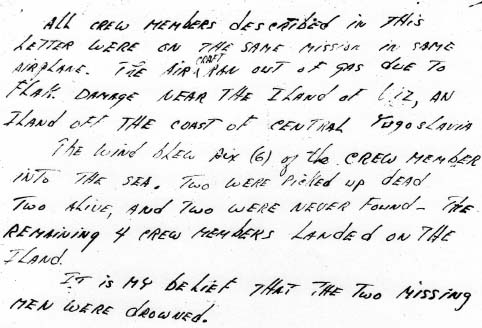 ALL CREW MEMBERS described in THis
LETTER WERE ON THE SAME Mission in SAME
AIRPLANE. THE AIR CRAFT RAN OUT OF GAS due TO
FLAK DAMAGE NEAR THE ILANd of VIZ, AN
ILANd off THE COAST of CENTRAL Yugoslavia
The Wind blew six (6) of the CREW MEMBER
iNTO THE SEA. TWO WERE Picked up dead
TWO Alive, ANd TWO WERE NEVER FOUNd - THE
REMAINING 4 CREW MEMBERS LANdEd ON THE
ILANd.
IT is MY bELIEF THAT THE TWO MISSING
MEN WERE dROWNEd.